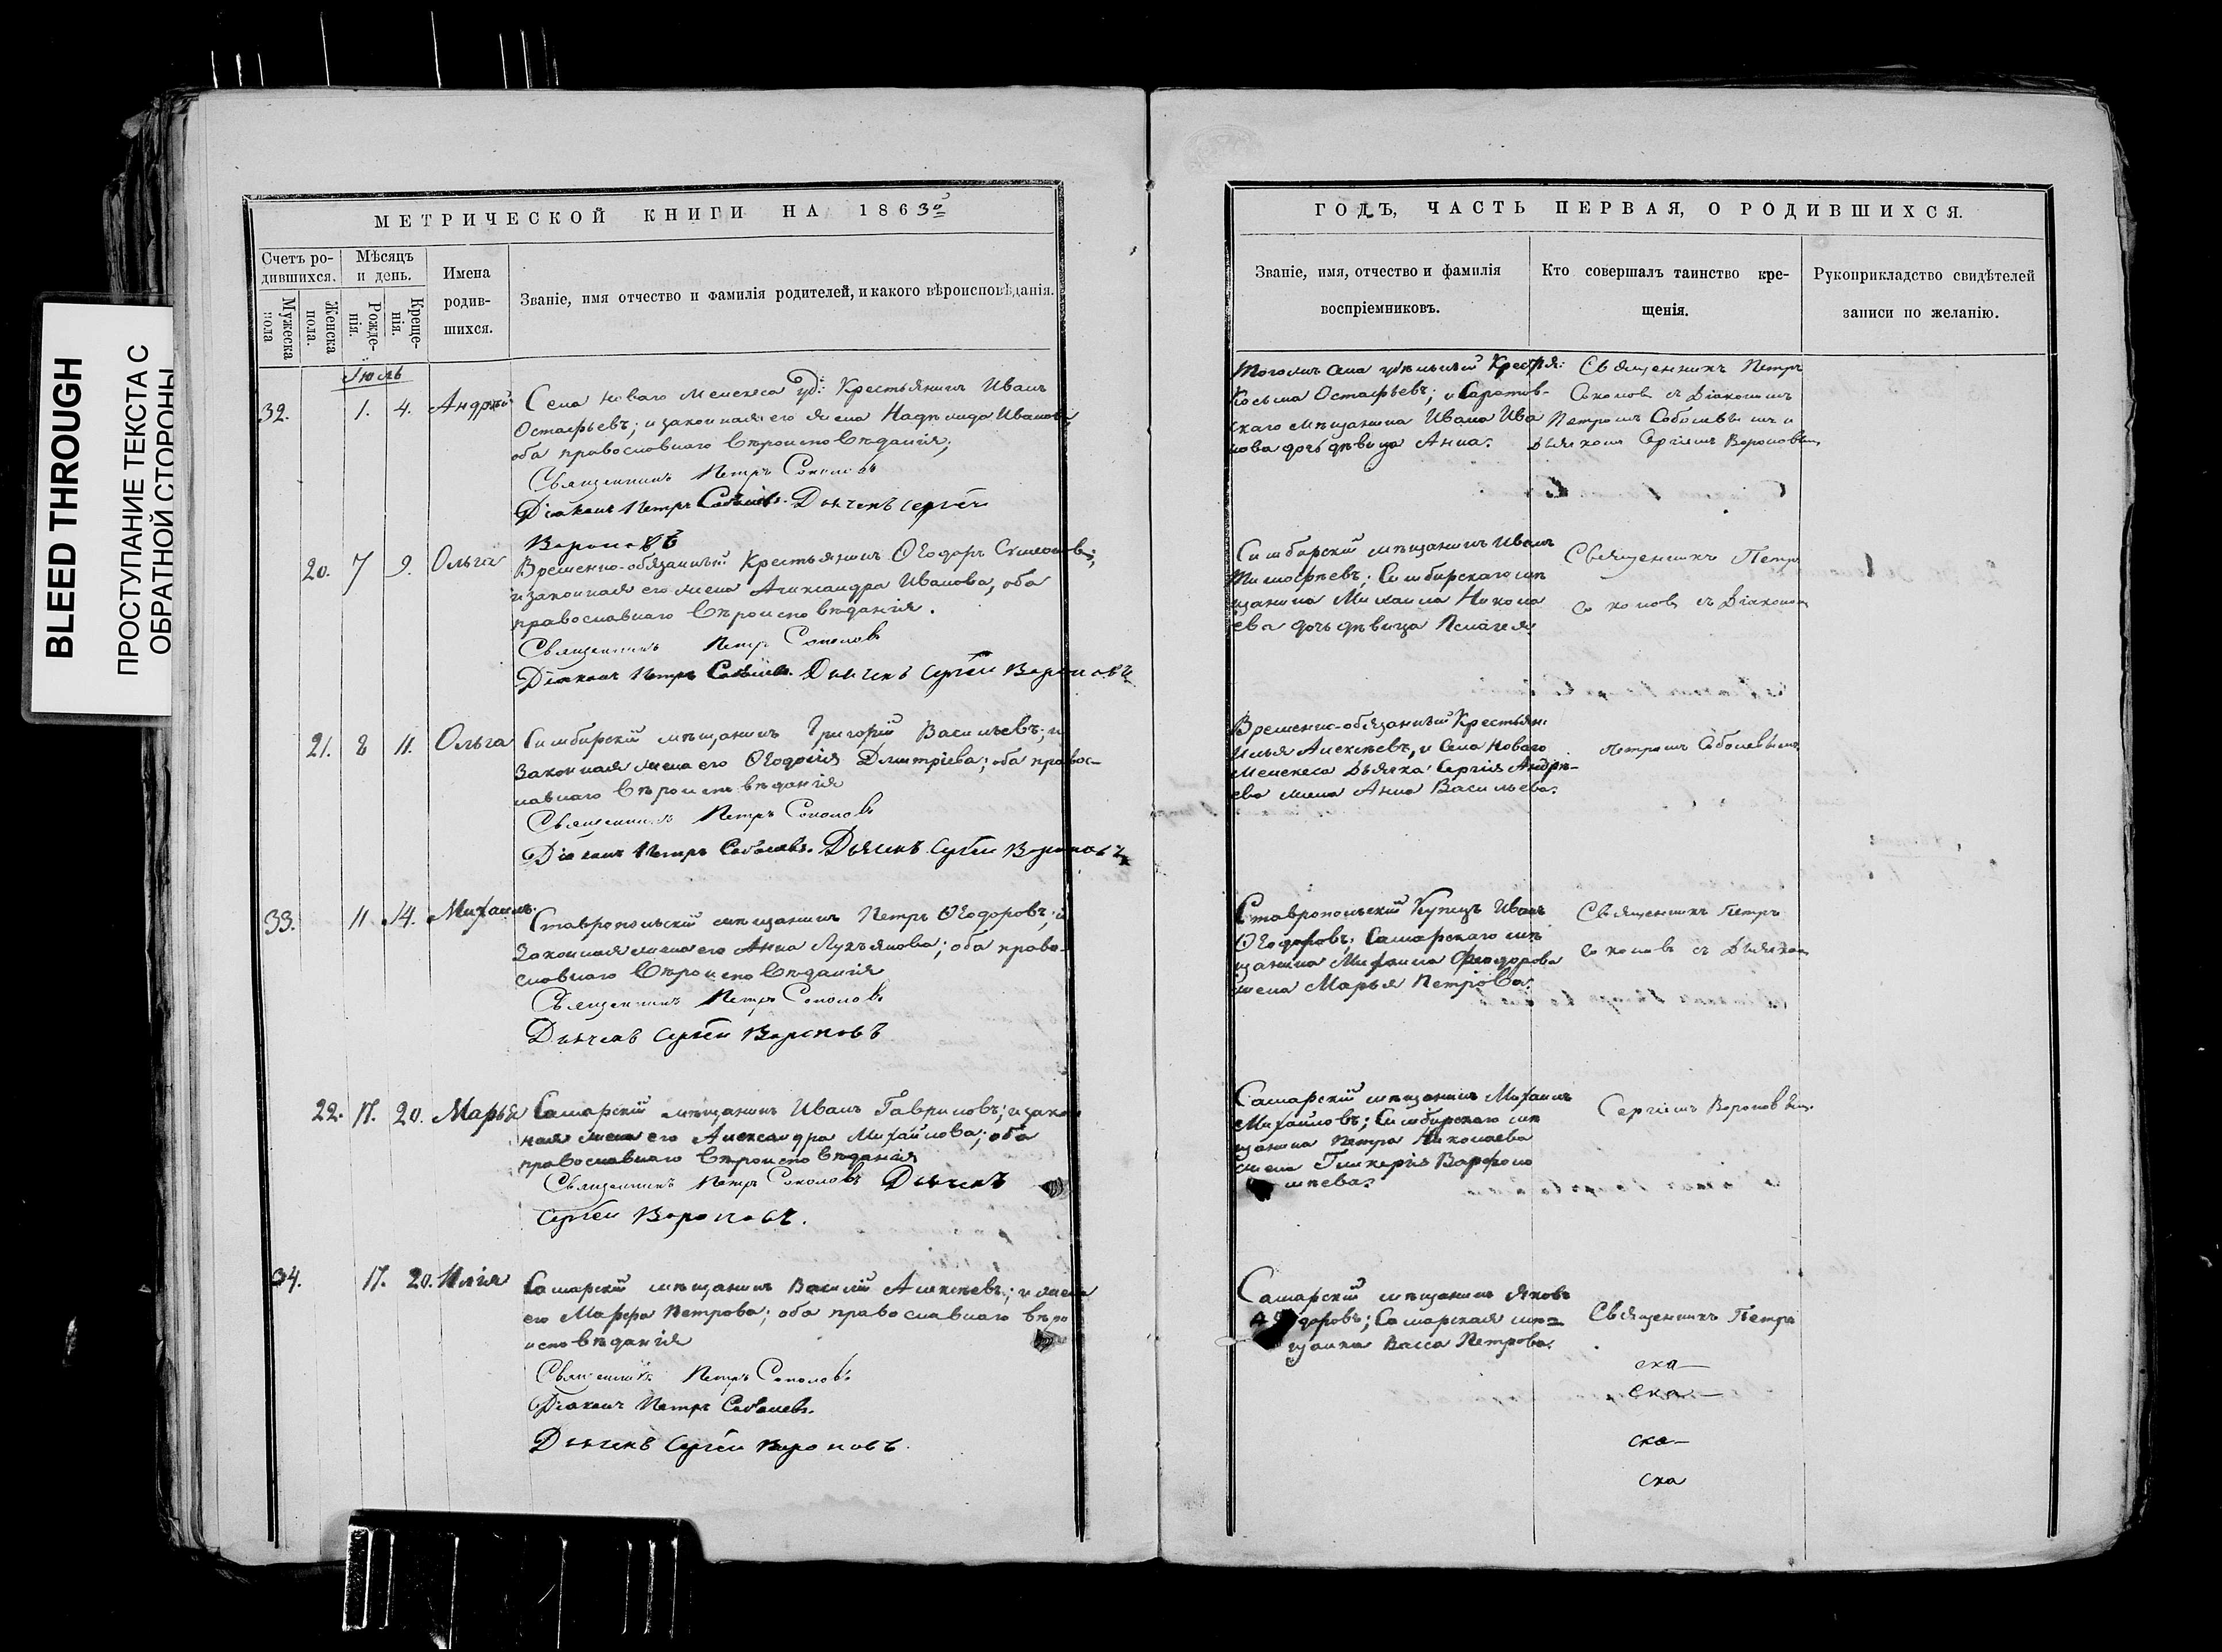 BLEED THROUGH
ПРОСТУПАНИЕ ТЕКСТА С
ОБРАТНОЙ СТОРОНЫ
МЕТРИЧЕСКОЙ КНИГИ НА 1863го
Счетъ ро-
дившихся.
Мужеска
пола
Женска
пола.
Мѣсяцъ
и день.
Рожде-
нія.
Креще-
нія.
Имена
родив-
шихся.
Званіе, имя отчество и фамилія родителей, и какого вѣроисповѣданія.
Іюль
32. 1. 4. Андрей
Села Новаго Мелекеса уд: Крестьянинъ Иванъ
Остафьевъ; и законная его жена Надежда Иванова,
оба православнаго вѣроисповѣданія;
Священникъ Петръ Соколовъ
Діаконъ Петръ Соболевъ. Дьячекъ Сергѣй
Вороновъ
20. 7 9. Ольга
Временно-обязанный Крестьянинъ Ѳеодоръ
и законная его жена Александра Иванова, оба
православнаго вѣроисповѣданія.
Священникъ Петръ Соколовъ
Діаконъ Петръ Соболевъ. Дьячекъ Сергѣй Вороновъ
21. 8 11. Ольга
Симбирскій мѣщанинъ Григорій Васильевъ; и
законная жена его Ѳеодосія Дмитріева; оба правос-
лавнаго вѣроисповѣданія
Священникъ Петръ Соколовъ
Діаконъ Петръ Соболевъ. Дьячекъ Сергѣй Вороновъ
33. 11 14. Михаилъ.
Ставропольскій мѣщанинъ Петръ Ѳеодоровъ; и
законная жена его Анна Лукьянова; оба право-
славнаго вѣроисповѣданія
Священникъ Петръ Соколовъ
Дьячекъ Сергѣй Вороновъ
22. 17. 20. Марья
Самарскій мѣщанинъ Иванъ Гавриловъ; и закон
ная жена его Александра Михайлова; оба
православнаго вѣроисповѣданія
Священникъ Петръ Соколовъ Дьячекъ
Сергѣй Вороновъ.
34. 17. 20. Илія
Самарскій мѣщанинъ Василій Алексѣевъ; и жена
его Марфа Петрова; оба православнаго вѣро
исповѣданія
Священникъ Петръ Соколовъ
Діаконъ Петръ Соболевъ.
Дьячекъ Сергѣй Вороновъ.
ГОДЪ, ЧАСТЬ ПЕРВАЯ, О РОДИВШИХСЯ.
Званіе, имя, отчество и фамилія
воспріемниковъ.
Кто совершалъ таинство кре-
щенія.
Рукоприкладство свидѣтелей
записи по желанію.
Тогожъ села удѣльный Крестья:
Косьма Остафьевъ; и Саратов-
скаго мѣщанина Ивана Ива
нова дочь дѣвица Анна.
Священникъ Петръ
Соколовъ съ Діакономъ
Петромъ Соболевымъ и
дьячкомъ Сергіемъ Вороновымъ
Симбирскій мѣщанинъ Иванъ
Тимофѣевъ; Симбирскаго мѣ
щанина Михаила Никола
ева дочь дѣвица Пелагея.
Священникъ Петръ
Соколовъ съ Діакономъ
Временно-обязанный Крестьян:
Илья Алексѣевъ, и Села Новаго
Мелекеса дьячка Сергія Андре-
ева жена Анна Васильева.
Петромъ Соболевымъ
Ставропольскій Купецъ Иванъ
Ѳеодоровъ; Самарскаго мѣ
щанина Михаила Феодорова
жена Марья Петрова.
Священникъ Петръ
Соколовъ съ Дьячкомъ
Самарскій мѣщанинъ Михаилъ
Михайловъ; Симбирскаго мѣ
щанина Петра Николаева
жена Гликерія Варфоло
мѣева.
Сергіемъ Вороновымъ.
Самарскій мѣщанинъ Яковъ
Ѳеодоровъ; Самарская мѣ-
щанка Васса Петрова.
Священникъ Петръ
ска—
ска—
ска—
ска